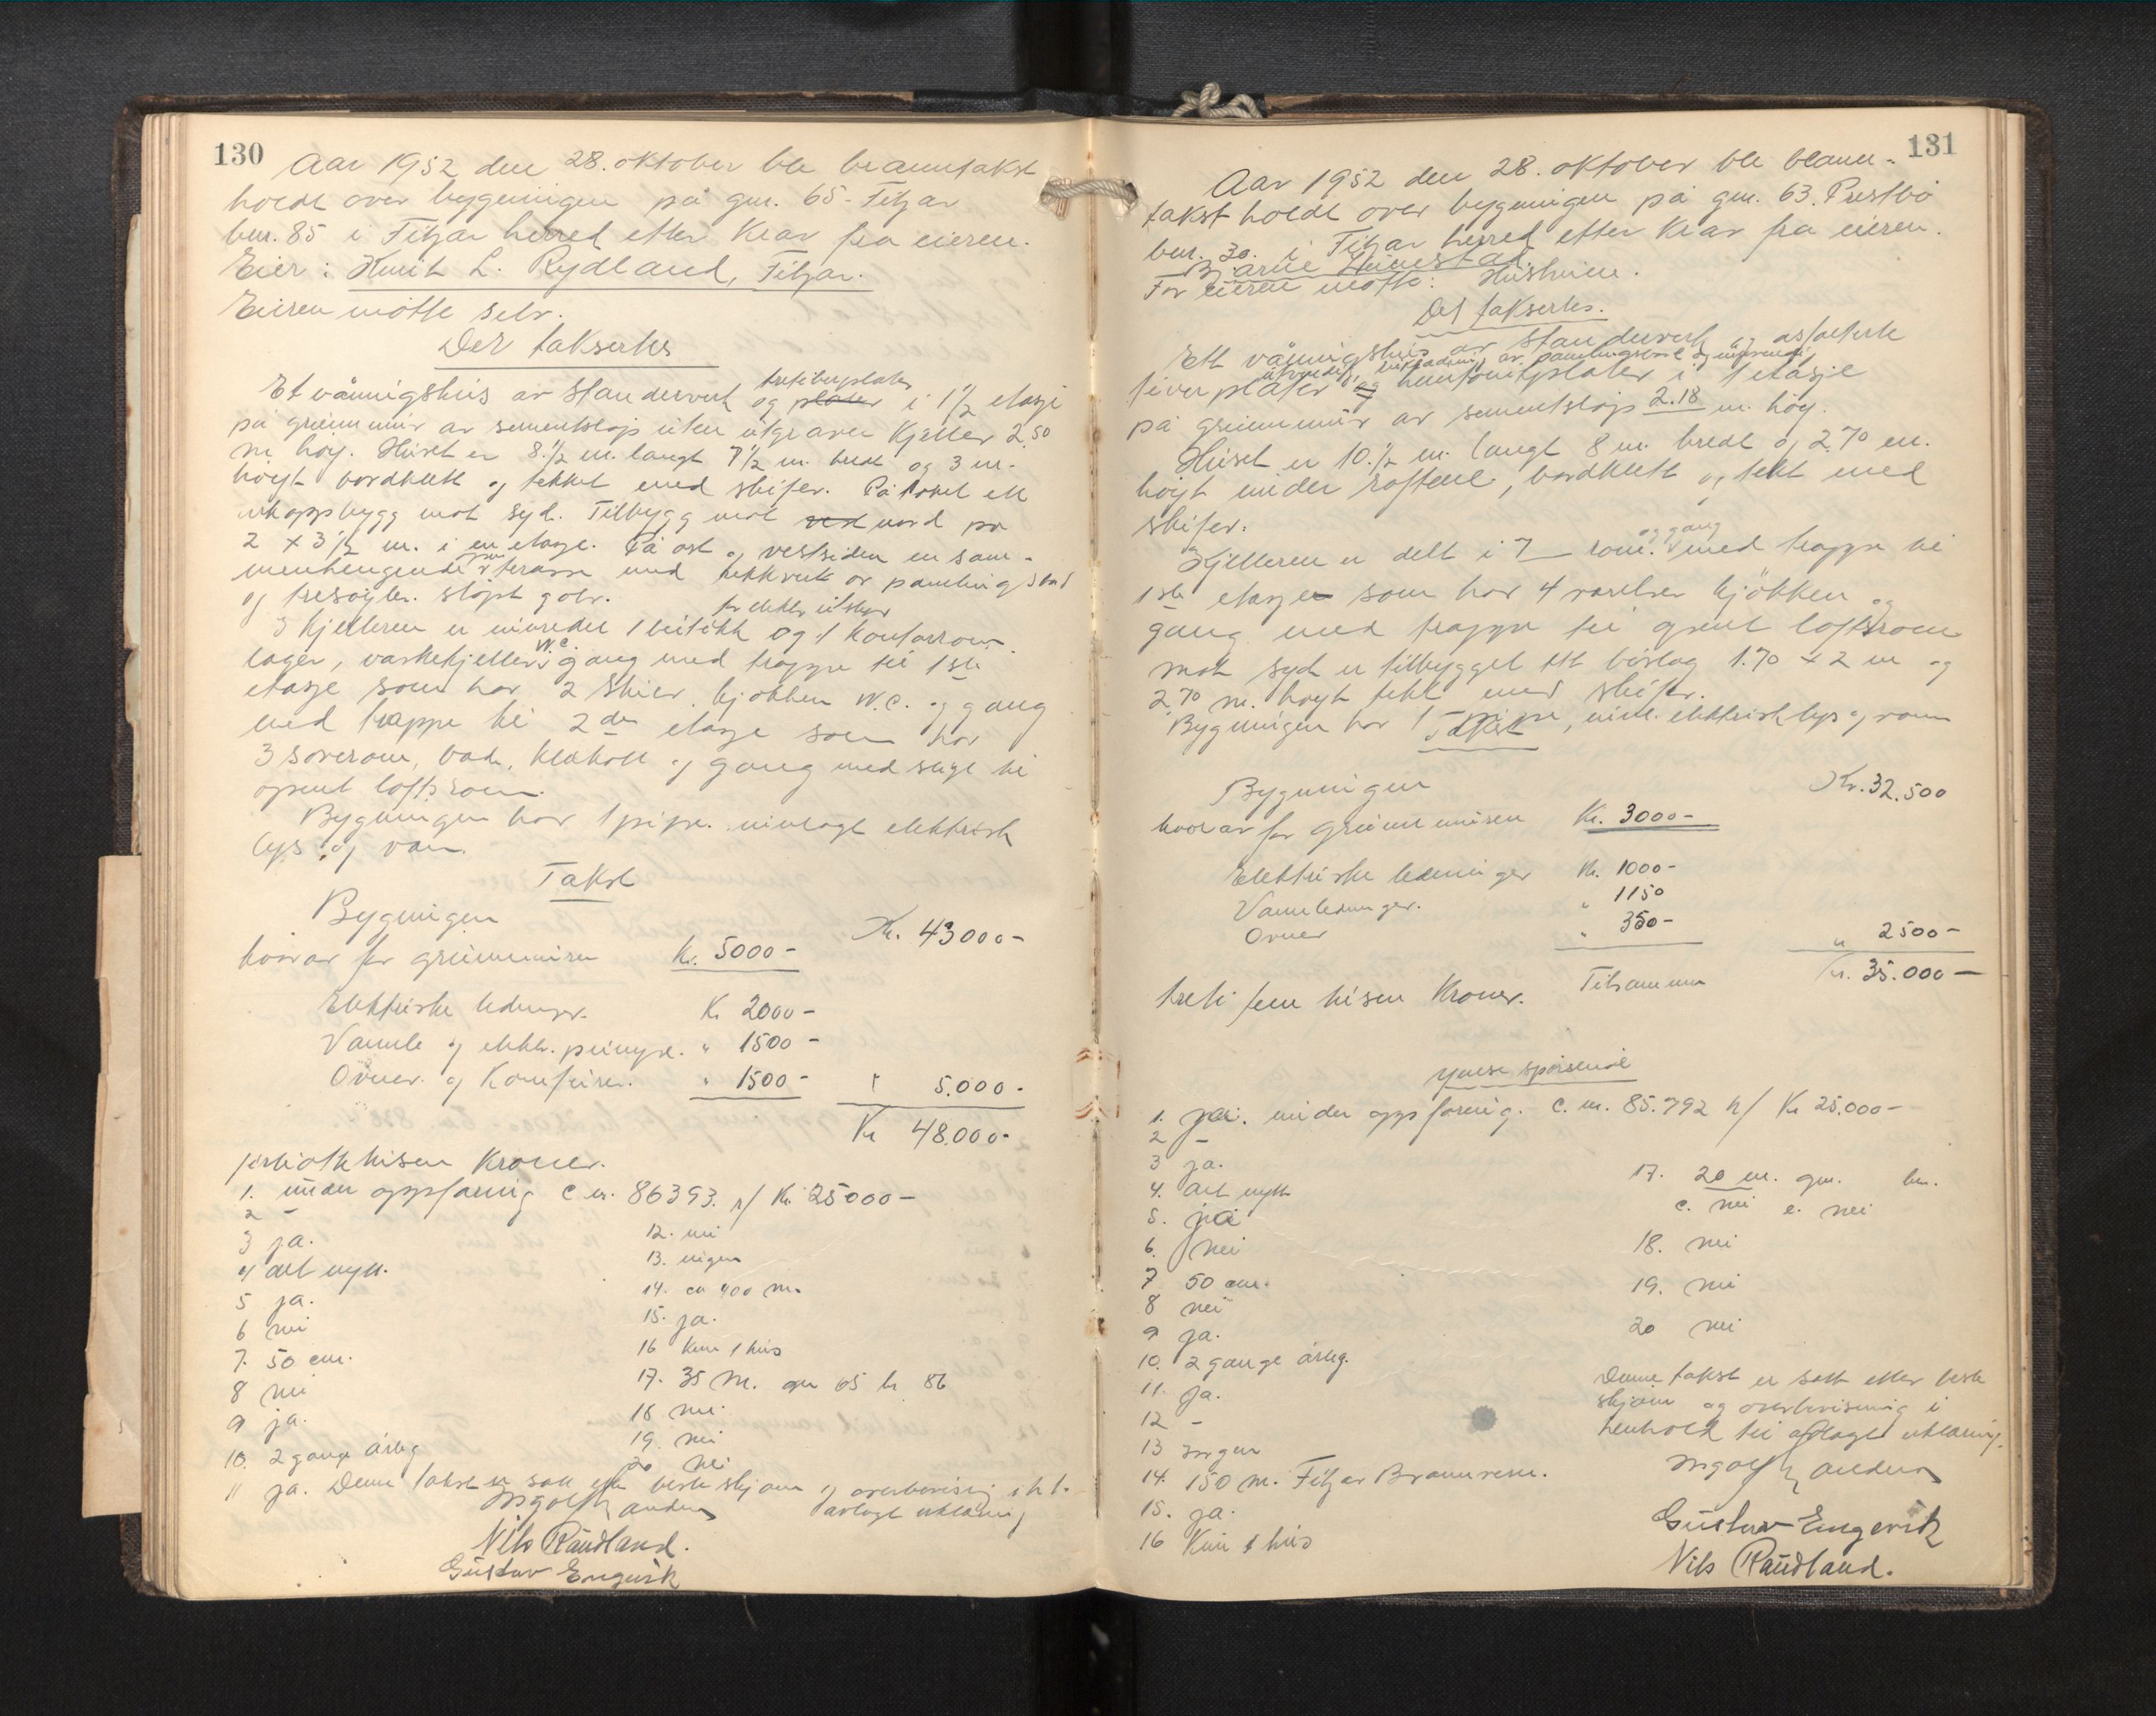 130
Aar 1952 den 28. oktober ble branntakst
holdt over bygningen på gnr. 65 - Fitjar
bnr. 85 i Fitjar herred etter krav fra eieren.
Eier: Knut L. Rydland, Fitjar.
Eieren møtte selv.
Det taksertes
trefiberplater
Et våningshus av standerverk og plater i 1 1/2 etasje
på grunnmur av sementstøp uten utgraven kjeller 2.50
m høg. Huset er 8.1/2 m. langt 7 1/2 m. bredt og 3 m.
høgt bordkledt og tekket med skifer. På taket ett
arkoppbygg mot syd. Tilbygg mot ved nord på
2 x 3 1/2 m. i en etasje. På øst og vestsiden en sam-
menhengende terasse med rekkverk av panelingsbord
og tresøyler. støpt golv.
for elektr. utstyr
I kjelleren er innredet 1 butikk og 1 kontorrom
W.C.
lager, vaskekjeller, gang med trappe til 1ste
etasje som har 2 stuer, kjøkken W.C. og gang
med trappe til 2den etasje som har
3 soverom, bad, klekott og gang med stige til
opent loftsrom.
Bygningen har 1 pipe. innlagt elektrisk
lys og vann.
Takst
Bygningen
Kr. 43000-
hvorav for grunnmuren Kr. 5000-
Elektriske ledninger. Kr 2000-
Vannle og elektr. pumpe. " 1500-
Ovner og Komfurer. " 1500- " 5.000-
Kr 48.000-
førtiotte tusen Kroner.
1. under oppføring C nr. 86393. p/ Kr 25000-
2 -
3 ja.
4 alt nytt.
5 ja.
6 nei
7. 50 cm.
8 nei
9 ja.
10. 2 gange årleg
11 ja.
12. nei
13. ingen
14. ca 400 m.
15. ja.
16 Kun 1 hus
17. 35 m. gnr 65 br 86
18 nei
19. nei
20 nei
Denne takst er satt etter beste skjønn og overbevisning i h.t.
avlagt erklæring
Nils Raudland.
Gustav Engevik
131
Aar 1952 den 28. oktober ble brann-
takst holdt over bygningen på gnr. 63. Prestbø
bnr. 30. i Fitjar herred etter krav fra eieren.
Bjarne
For eieren møtte: Husfruen.
Det taksertes.
Ett våningshus av standerverk og asfalterte
utvendig, av panelingsbord og innvendig
fiverplater og huntonitplater i 1 etasje
på grunnmur av sementstøp 2.18 m. høg.
Huset er 10.1/2 m. langt 8 m. bredt og 2.70 m.
høgt under raftene, bordkledt og tekt med
skifer.
og gang
Kjelleren er delt i 7 rom. med trappe til
1ste etasje som har 4 værelser kjøkken og
gang med trappe til opent loftsrom
mot syd er tilbygget ett bislag 1.70 x 2 m og
2.70 m. høgt tekt med skifer.
Bygningen har 1 pipe, innl. elektrisk lys og vann
Takst
Bygningen Kr. 32.500
hvorav for grunnmuren Kr. 3000-
Elektriske ledninger Kr. 1000-
Vannledninger. " 1150
Ovner " 350-
" 2500-
Tilsammen Kr. 35.000-
tretifem tusen Kroner.
1. ja. under oppføring. C. nr. 85.792 p/ Kr 25.000-
2 -
3 ja.
4. alt nytt
5. ja
6. nei
7 50 cm.
8 nei
9 ja.
10. 2 gange årleg.
11. ja.
12 -
13 Ingen
14. 150 m. Fitjar Brannvesen.
15. ja.
16 Kun 1 hus
17. 20 m. gnr. bnr.
c. nei e. nei
18. nei
19. nei
20 nei
Denne takst er satt etter beste
skjønn og overbevisning i
henhold til avlagt erklæring.
Gustav Engevik
Nils Raudland.